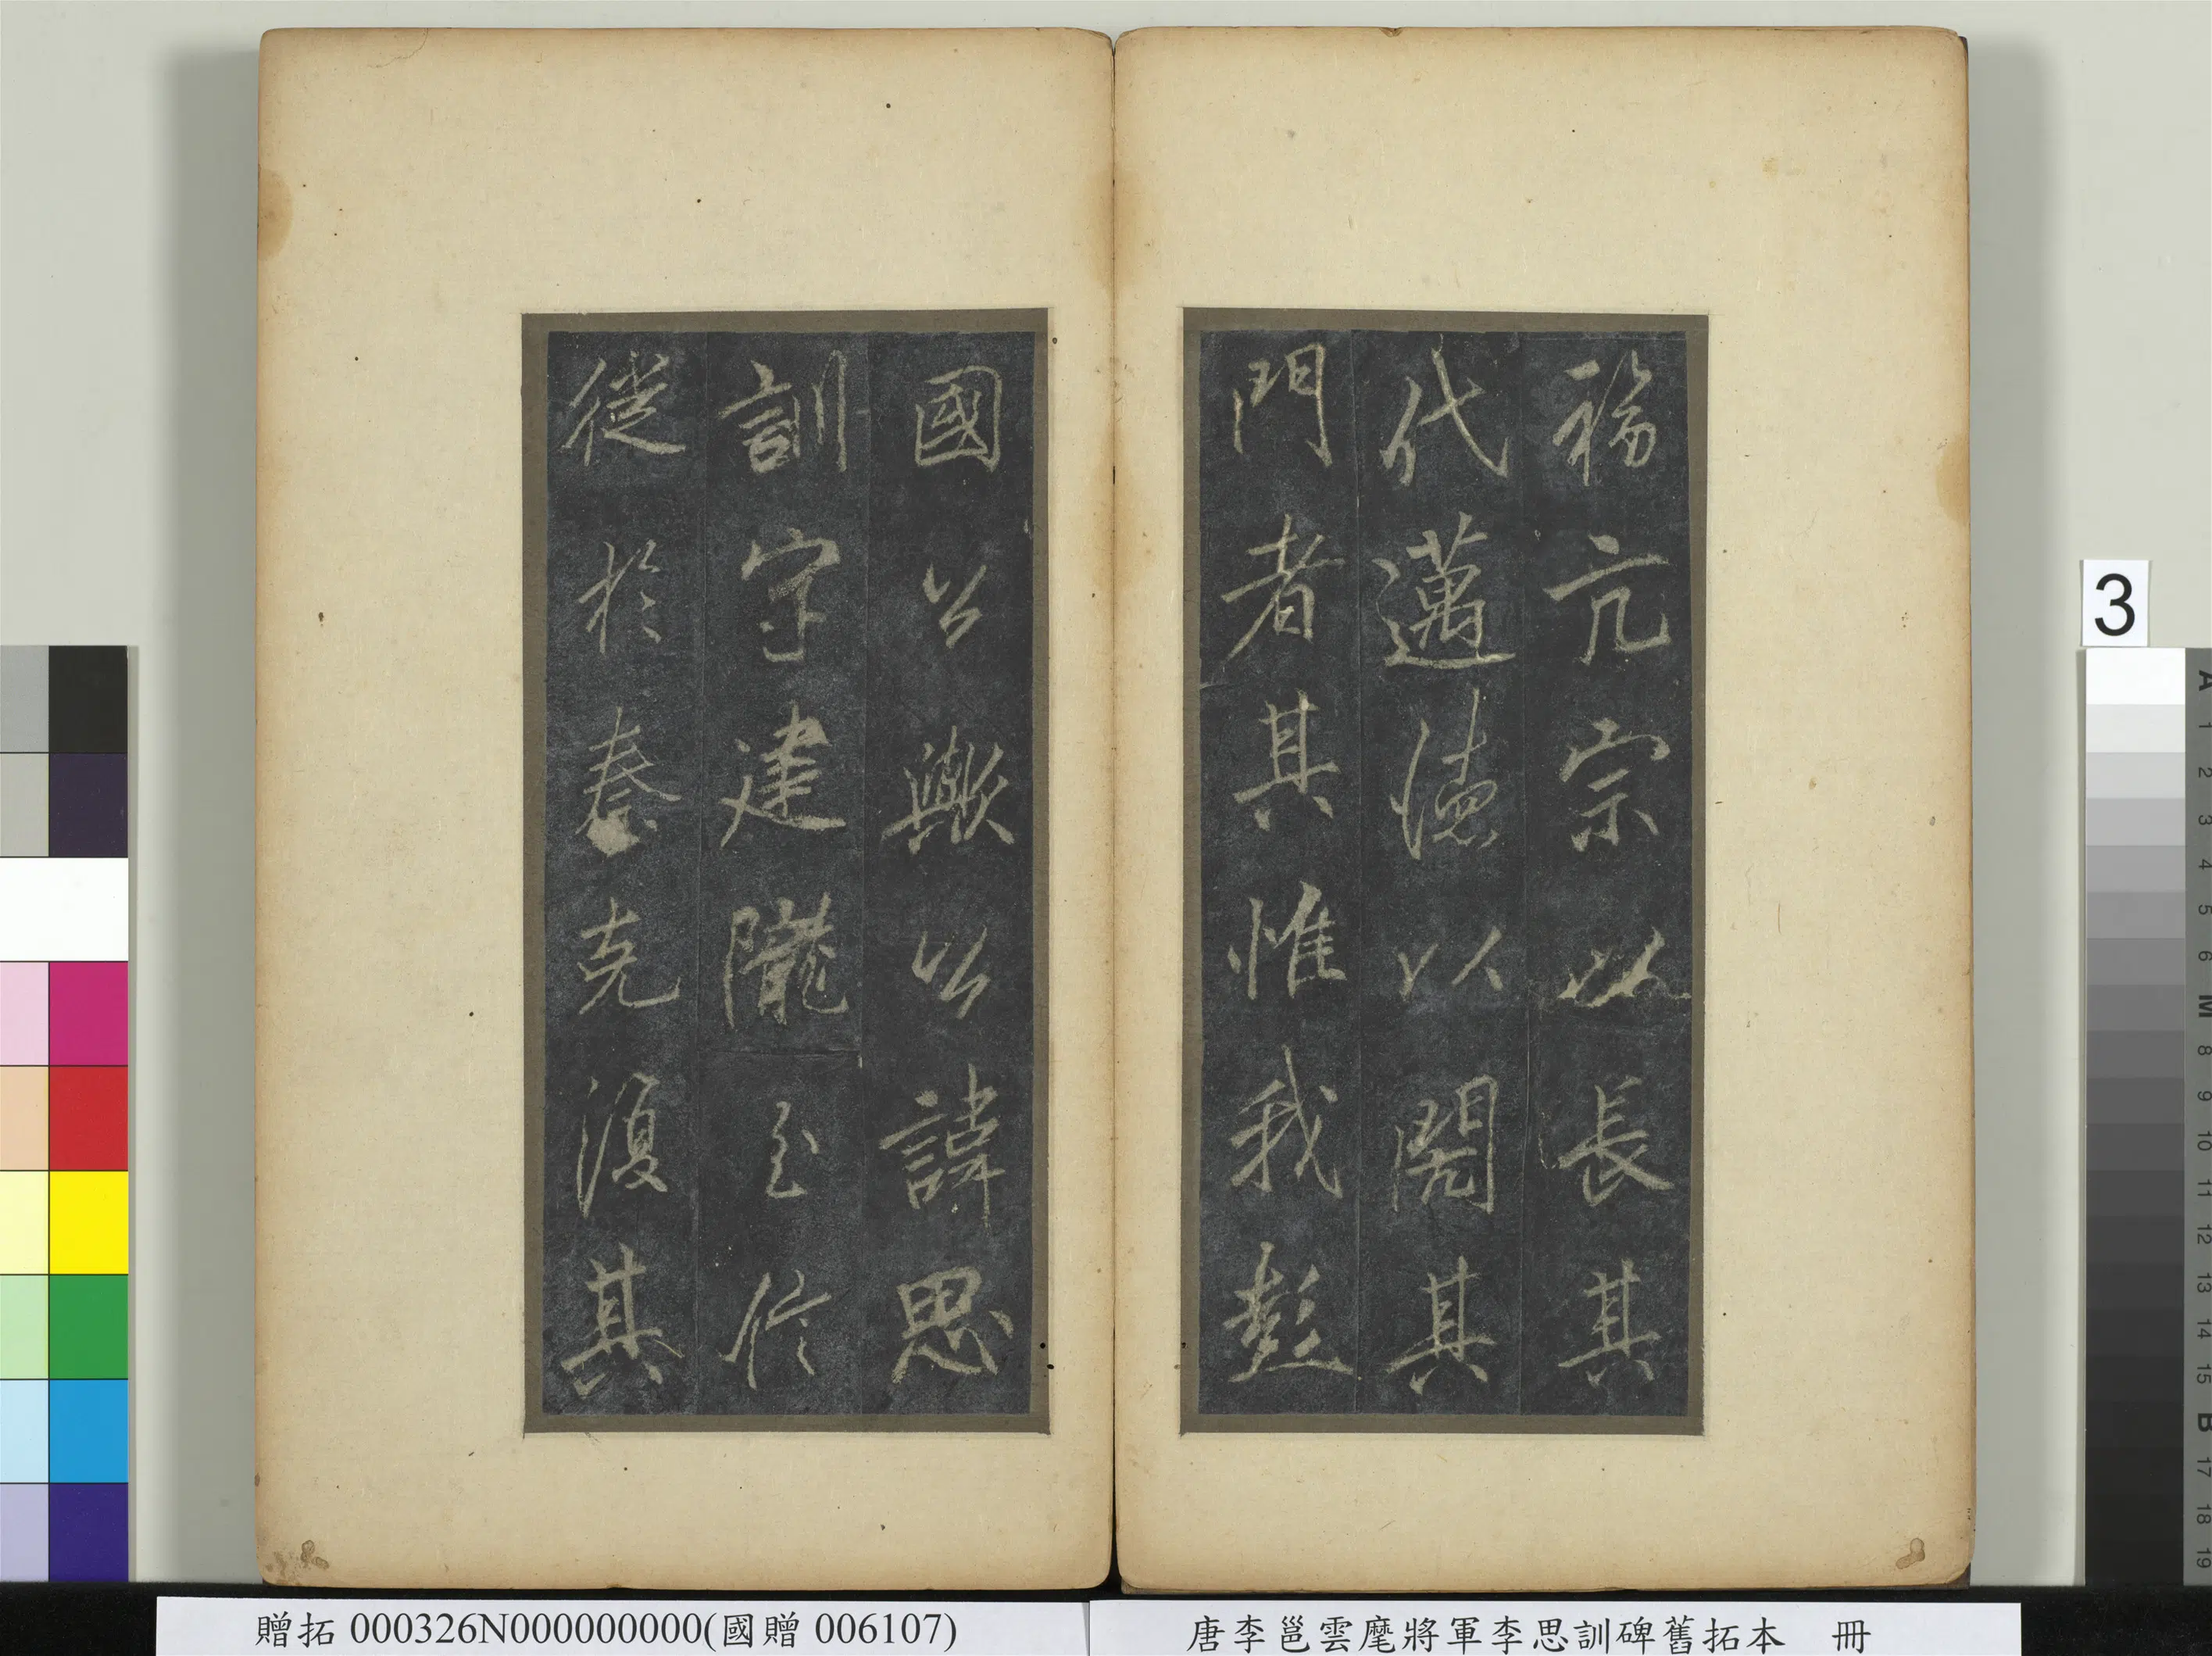 福亢宗以長其
代邁德以閱其
門者其惟我彭
國公歟公諱思
訓字建隴西信
從於秦克復其
3
A
1
2
3
4
5
6
M
8
9
10
11
12
13
14
15
B
17
18
19
贈拓 000326N000000000(國贈 006107)
唐李邕雲麾將軍李思訓碑舊拓本 冊